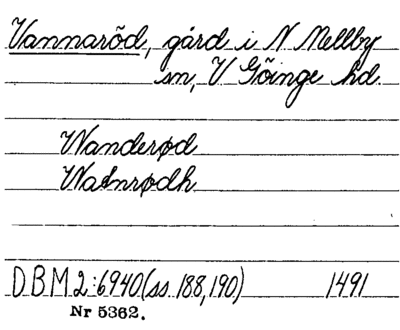 Vannaröd, gård i N Mellby
sn, V Göinge hd.
Wanderød
Watnrødh
DBM 2:6940 (ss. 188, 190) 1491
Nr 5362.